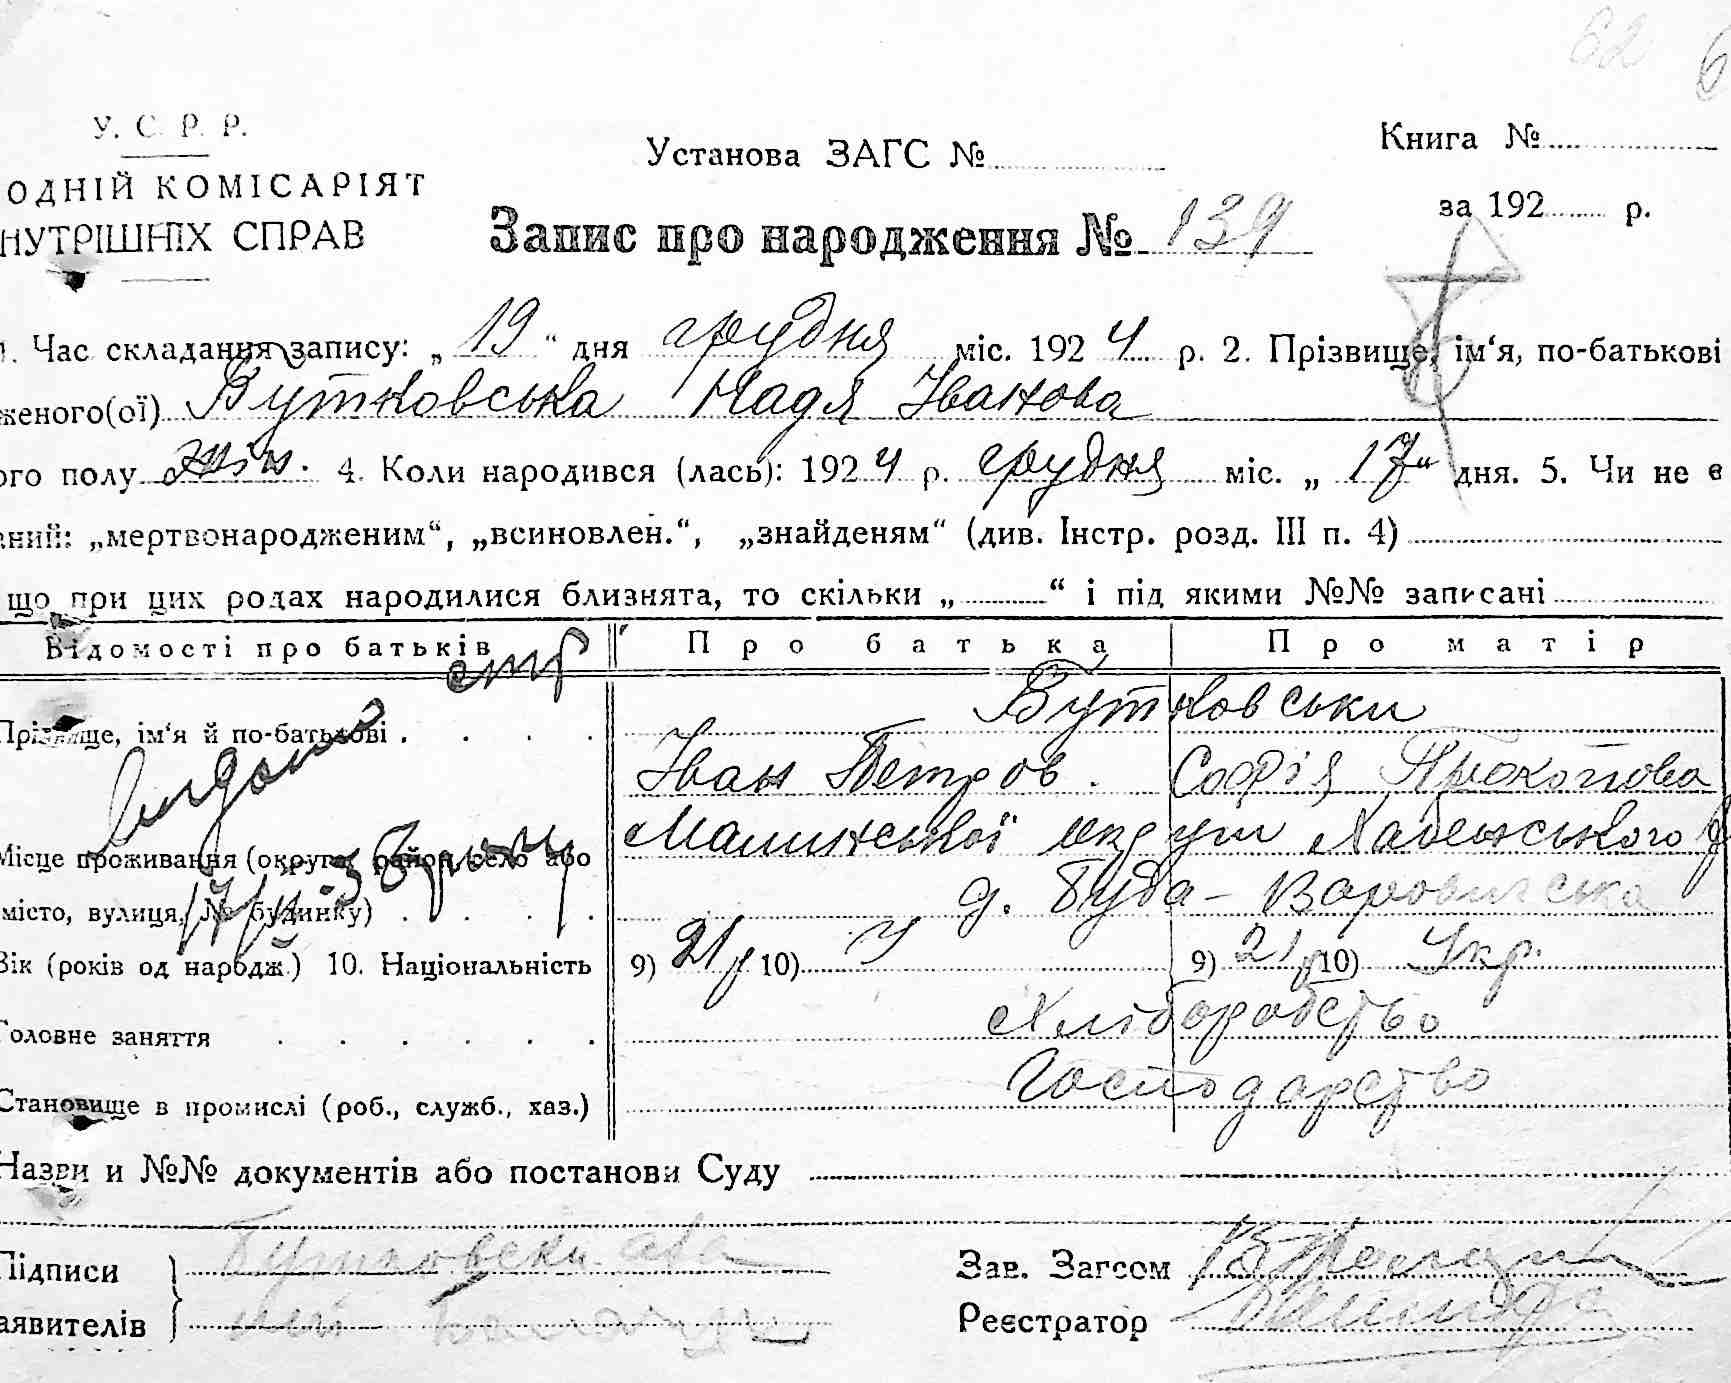 62 6
У. С. Р. Р.
ОДНІЙ КОМІСАРІЯТ
НУТРІШНІХ СПРАВ
Установа ЗАГС №
Книга №
за 192 р.
Запис про народження № 139
1. Час складання запису: „19“ дня грудня міс. 1924 р. 2. Прізвище, ім‘я, по-батькові
женого(ої) Бутковська Надя Іванова
ого полу жін. 4. Коли народився (лась): 1924 р. грудня міс. „17“ дня. 5. Чи не є
аний: „мертвонародженим“, „всиновлен.“, „знайденям“ (див. Інстр. розд. III п. 4)
що при цих родах народилися близнята, то скільки „ “ і під якими №№ записані
Відомості про батьків Про батька Про матір
Прізвище, ім‘я й по-батькові Бутковськи
Іван Петров. Софія Прокопова
видано
Місце проживання (округа, район, село або Малинської округи Хабенського р
місто, вулиця, № будинку) д. Буда-Варовичська
Вік (років од народж.) 10. Національність 9) 21 р 10) У 9) 21 р 10) Укр.
Головне заняття Хліборобство
Становище в промислі (роб., служб., хаз.) Господарство
Назви и №№ документів або постанови Суду
Підписи
аявителів
Зав. Загсом
Реєстратор